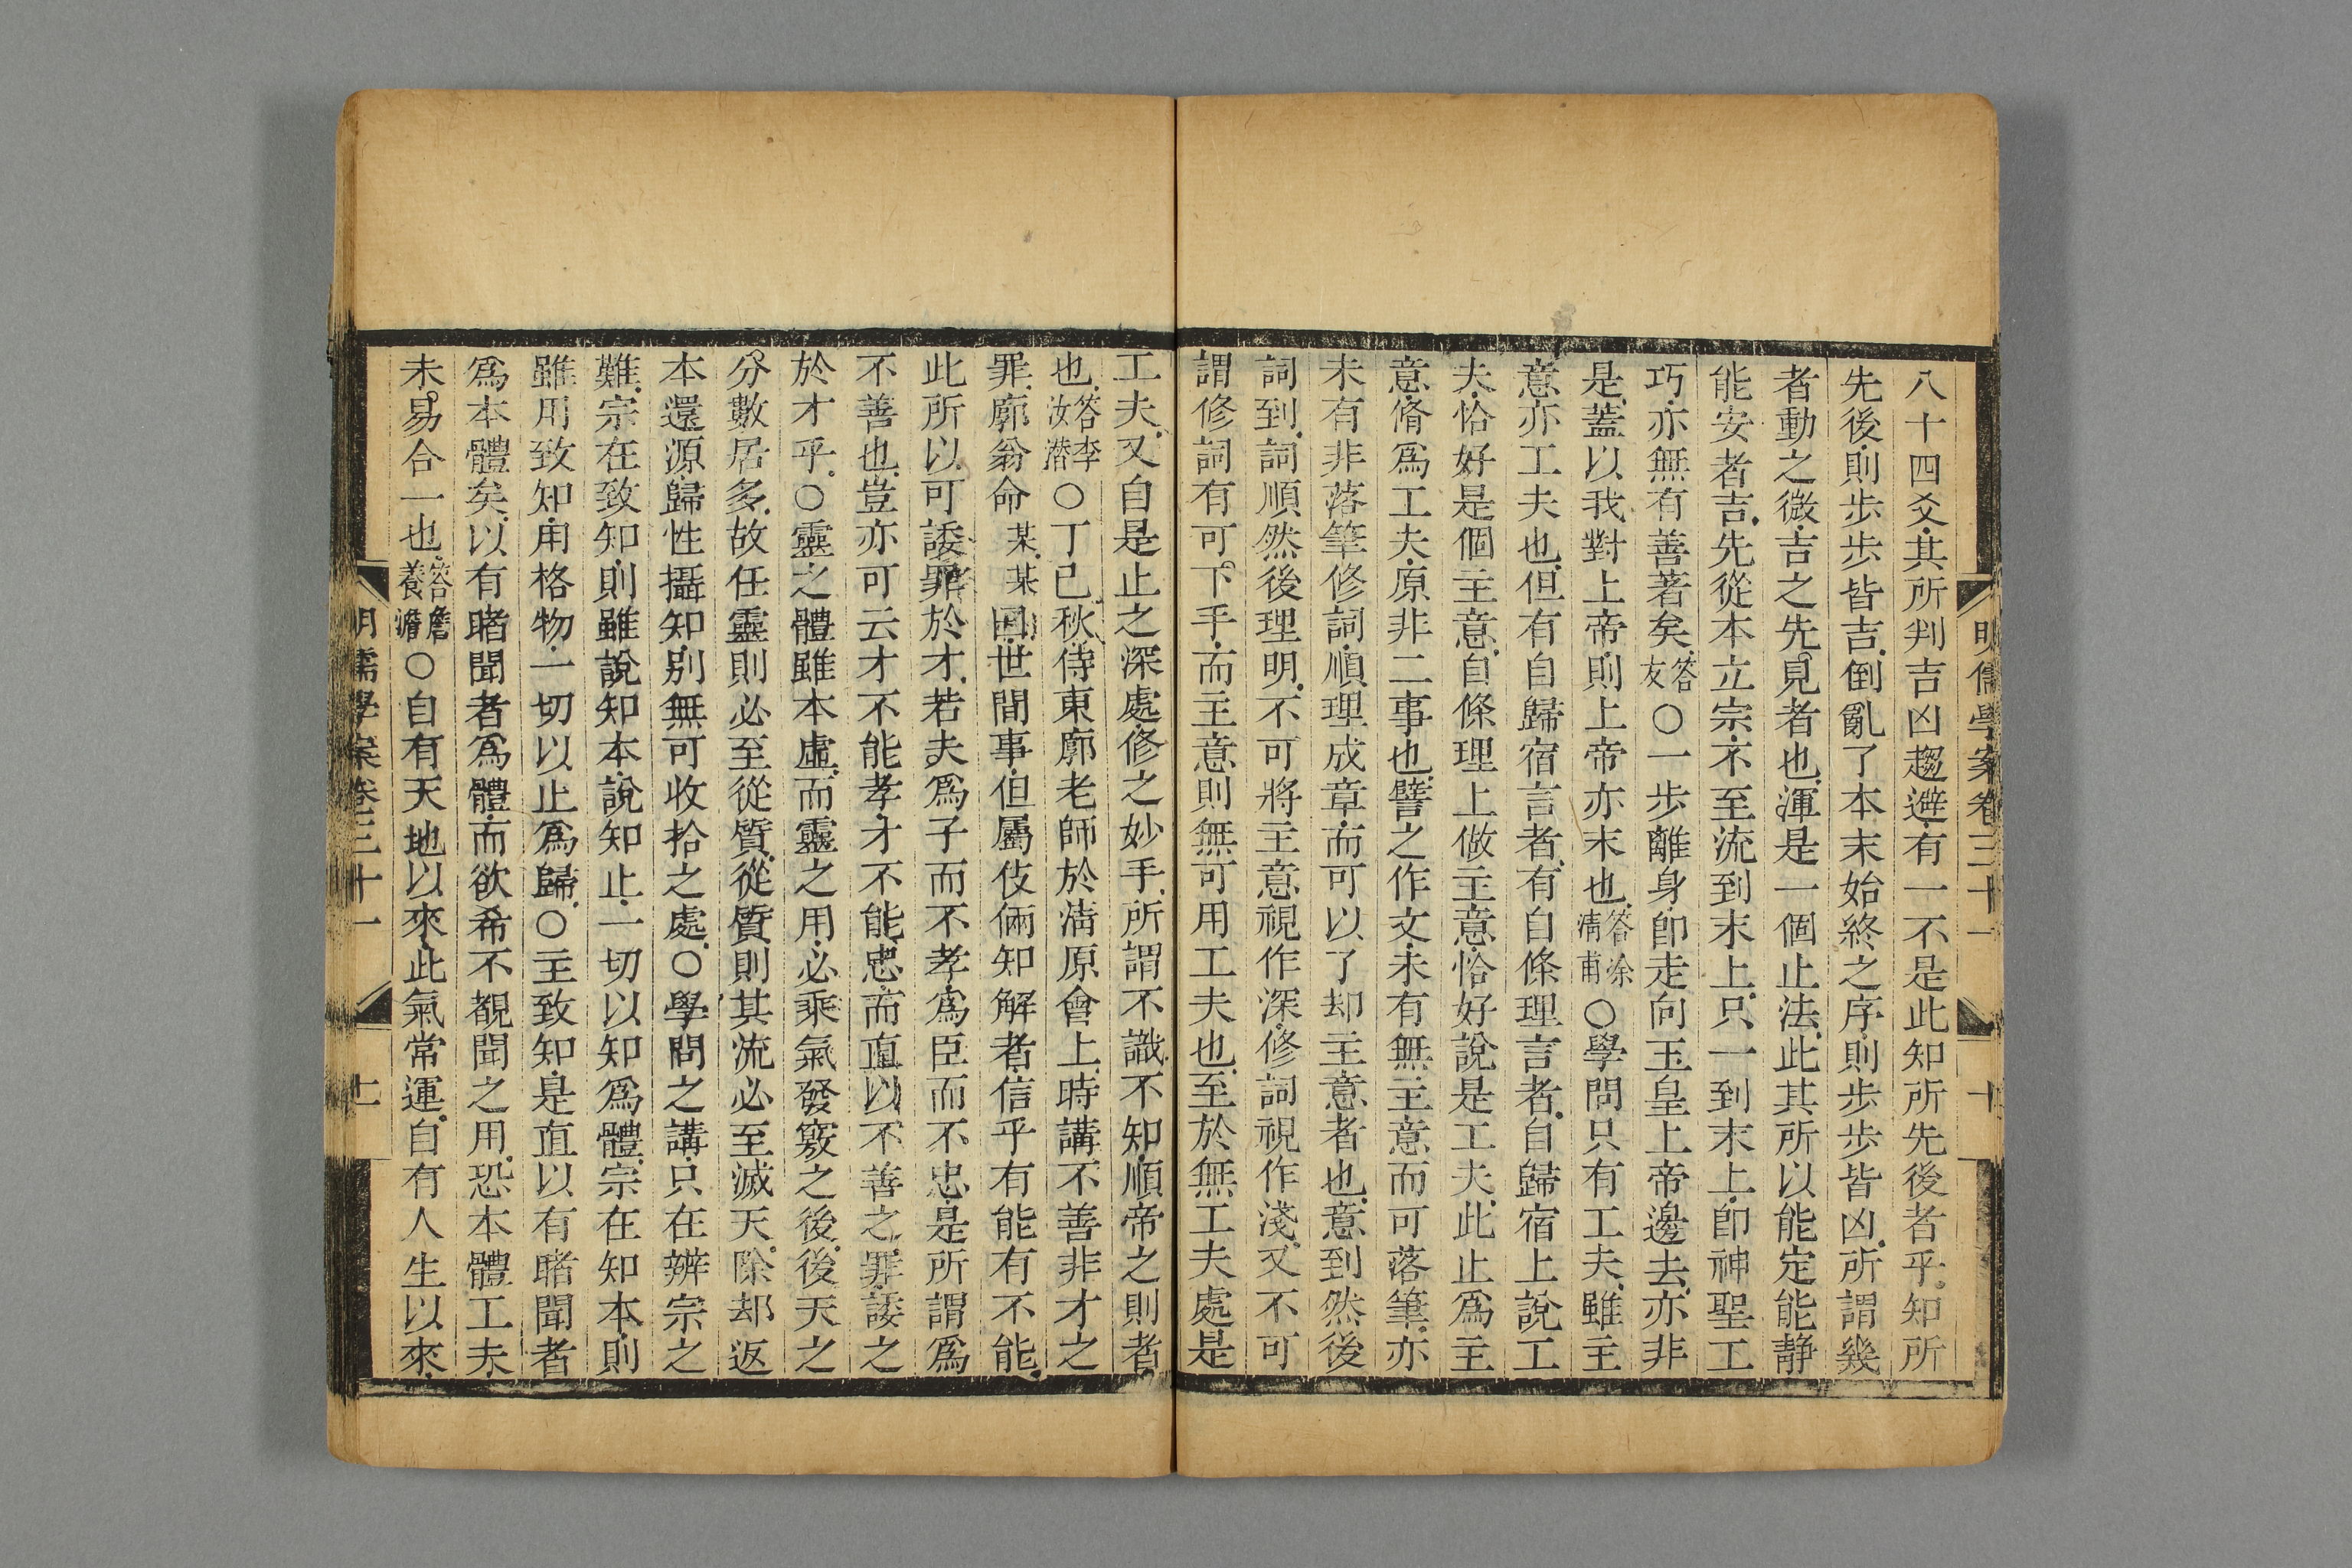 明儒學案卷三十一
十
八十四爻其所判吉凶趨避有一不是此知所先後者乎知所
先後則步步皆吉倒亂了本末始終之序則步步皆凶所謂幾
者動之微吉之先見者也渾是一個止法此其所以能定能靜
能安者吉先從本立宗不至流到末上只一到末上卽神聖工
巧亦無有善著矣答友○一步離身卽走向玉皇上帝邊去亦非
是蓋以我對上帝則上帝亦末也答涂清甫○學問只有工夫雖主
意亦工夫也但有自歸宿言者有自條理言者自歸宿上說工
夫恰好是個主意自條理上做主意恰好說是工夫此止爲主
意脩爲工夫原非二事也譬之作文未有無主意而可落筆亦
未有非落筆修詞順理成章而可以了却主意者也意到然後
詞到詞順然後理明不可將主意視作深修詞視作淺又不可
謂修詞有可下手而主意則無可用工夫也至於無工夫處是
工夫又自是止之深處修之妙手所謂不識不知順帝之則者
也答李汝潜○丁巳秋侍東廓老師於清原會上時講不善非才之
罪廓翁命某某回世間事但屬伎倆知解者信乎有能有不能
此所以可諉罪於才若夫爲子而不孝爲臣而不忠是所謂爲
不善也豈亦可云才不能孝才不能忠而直以不善之罪諉之
於才乎○靈之體雖本虛而靈之用必乘氣發竅之後後天之
分數居多故任靈則必至從質從質則其流必至滅天除却返
本還源歸性攝知別無可收拾之處○學問之講只在辨宗之
難宗在致知則雖說知本說知止一切以知爲體宗在知本則
雖用致知用格物一切以止爲歸○主致知是直以有睹聞者
爲本體矣以有睹聞者爲體而欲希不覩聞之用恐本體工夫
未易合一也答詹養澹○自有天地以來此氣常運自有人生以來
明儒學案卷三十一